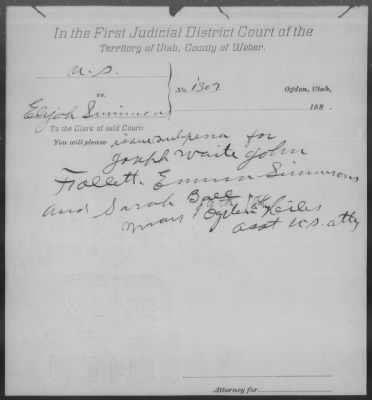 In the First Judicial District Court of the
Territory of Utah, County of Weber.
U.S.
vs.
Elijah Simmons
No. 1302
Ogden, Utah,
188
To the Clerk of said Court:
You will please issue subpena for
Joseph Waite John
Follett. Emma Simmons
and Sarah Ball
Ogden Hiles
asst U.S. atty
Attorney for